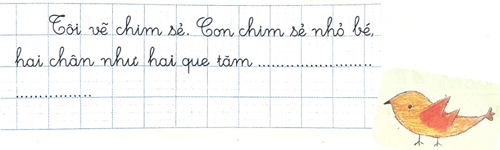 Tôi vẽ chim sẻ. Con chim sẻ nhỏ bé,
hai chân như hai que tăm ........................
...............